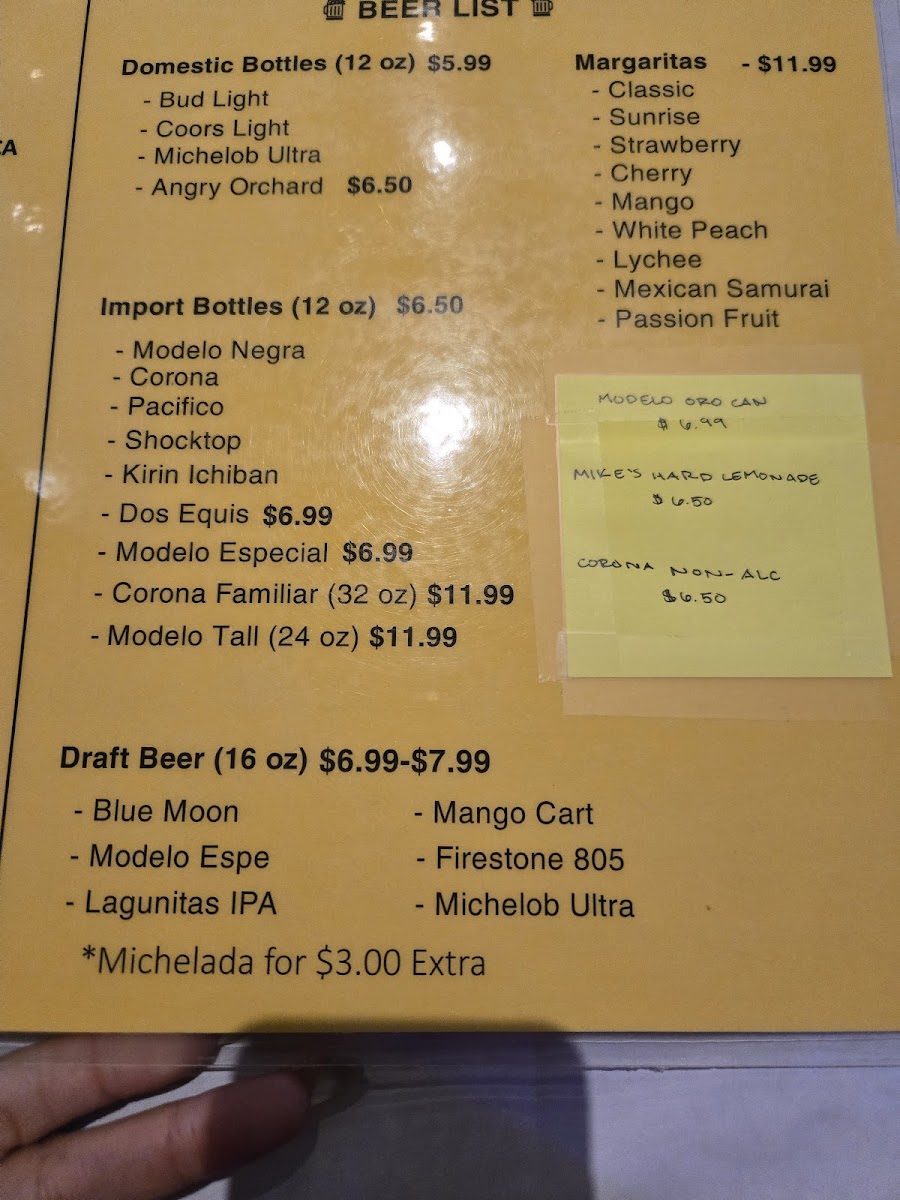 BEER LIST
Domestic Bottles (12 oz) $5.99
- Bud Light
- Coors Light
- Michelob Ultra
- Angry Orchard $6.50
Import Bottles (12 oz) $6.50
- Modelo Negra
- Corona
- Pacifico
- Shocktop
- Kirin Ichiban
- Dos Equis $6.99
- Modelo Especial $6.99
- Corona Familiar (32 oz) $11.99
- Modelo Tall (24 oz) $11.99
Margaritas - $11.99
- Classic
- Sunrise
- Strawberry
- Cherry
- Mango
- White Peach
- Lychee
- Mexican Samurai
- Passion Fruit
MODELO ORO CAN
$ 6.99
MIKE'S HARD LEMONADE
$ 6.50
CORONA NON-ALC
$6.50
Draft Beer (16 oz) $6.99-$7.99
- Blue Moon
- Modelo Espe
- Lagunitas IPA
- Mango Cart
- Firestone 805
- Michelob Ultra
*Michelada for $3.00 Extra